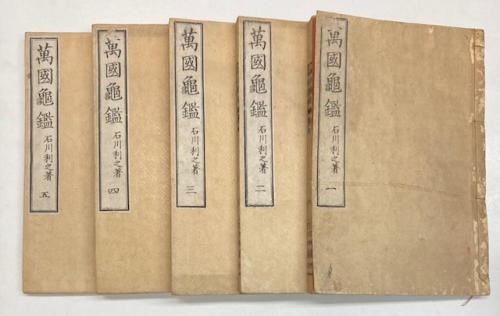 萬國龜鑑 石川利之著 一
萬國龜鑑 石川利之著 二
萬國龜鑑 石川利之著 三
萬國龜鑑 石川利之著 四
萬國龜鑑 石川利之著 五